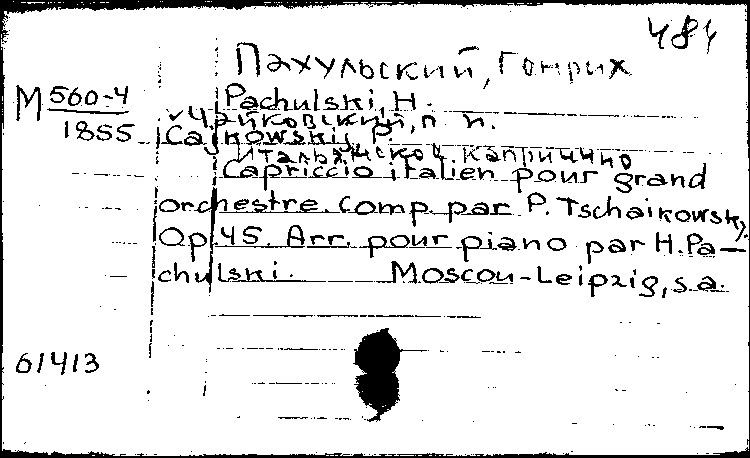 484
Пахульский, Гонрих
M 560-4
1855
Pachulski, H.
Чайковский, П. И.
Cajkowskij, P.
Итальянское каприччио
Capriccio italien pour grand
orchestre. Comp. par P. Tschaikowsky.
Op. 45. Arr. pour piano par H. Pa-
chulski. Moscou-Leipzig, s.a.
61413